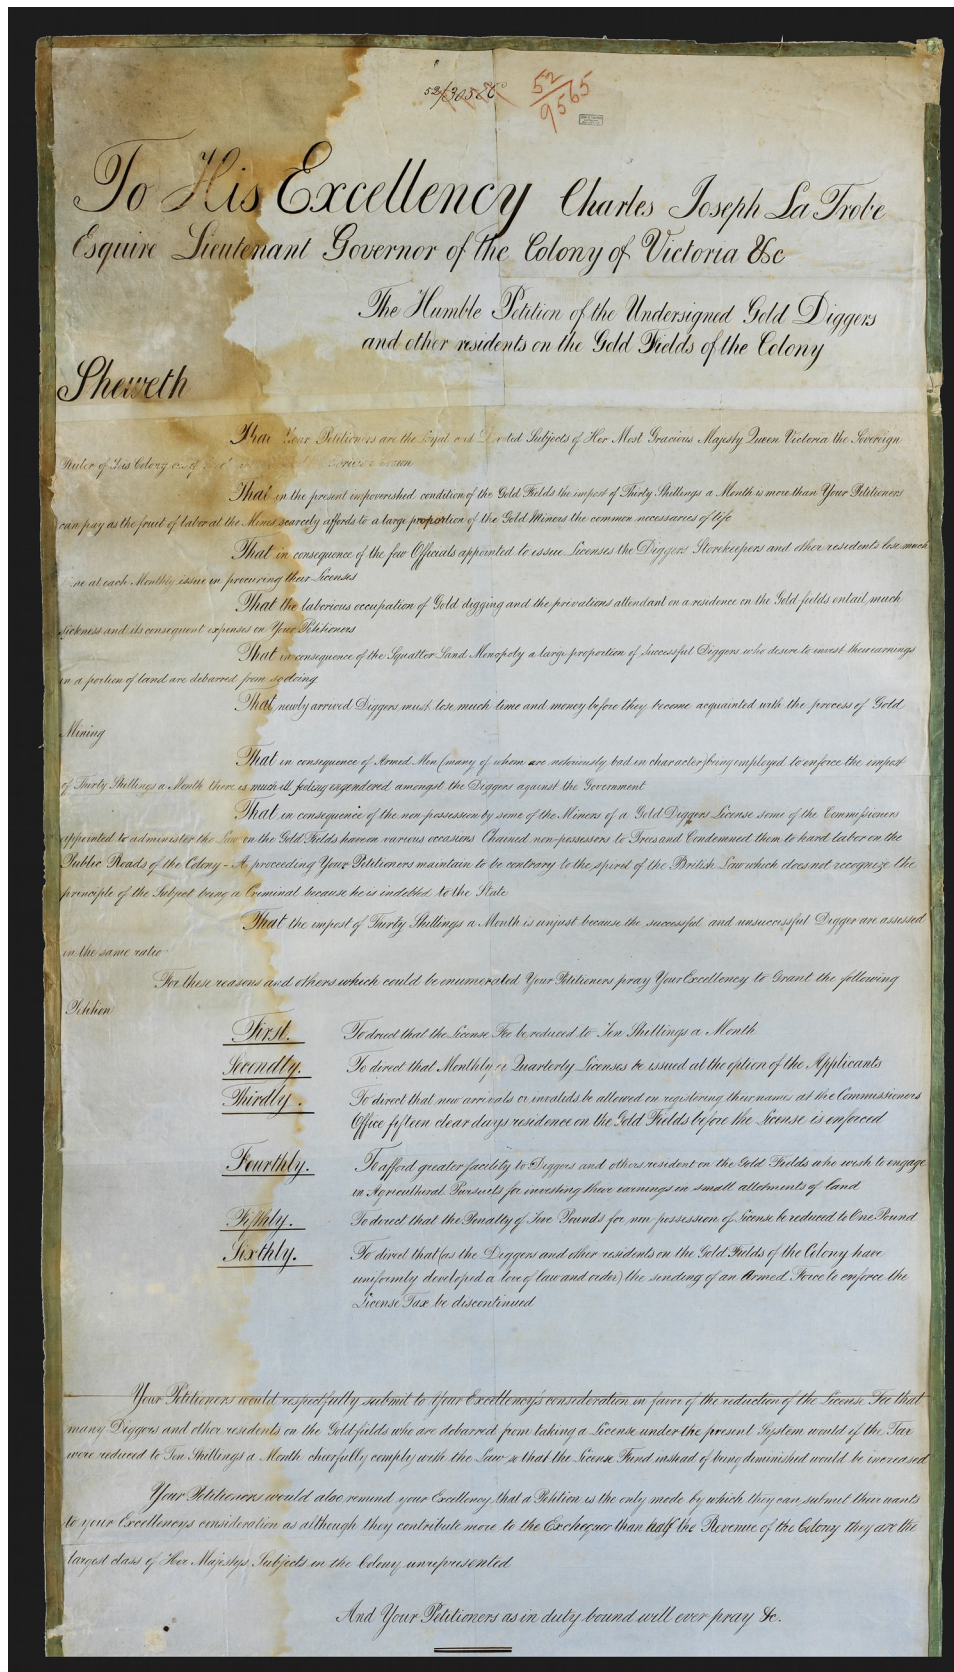 52/
52/9565
To His Excellency Charles Joseph La Trobe
Esquire Lieutenant Governor of the Colony of Victoria &c
The Humble Petition of the Undersigned Gold Diggers
and other residents on the Gold Fields of the Colony
Sheweth
That Your Petitioners are the Loyal and Devoted Subjects of Her Most Gracious Majesty Queen Victoria the Sovereign
Ruler of this Colony
That in the present impoverished condition of the Gold Fields the impost of Thirty Shillings a Month is more than Your Petitioners
can pay as the fruit of labor at the Mines scarcely affords to a large proportion of the Gold Miners the common necessaries of life
That in consequence of the few Officials appointed to issue Licenses the Diggers Storekeepers and other residents lose much
time at each Monthly issue in procuring their Licenses
That the laborious occupation of Gold digging and the privations attendant on a residence on the Gold fields entail much
sickness and its consequent expenses on Your Petitioners
That in consequence of the Squatter Land Monopoly a large proportion of Successful Diggers who desire to invest their earnings
in a portion of land are debarred from so doing
That newly arrived Diggers must lose much time and money before they become acquainted with the process of Gold
Mining
That in consequence of Armed Men (many of whom are notoriously bad in character) being employed to enforce the impost
of Thirty Shillings a Month there is much ill feeling engendered amongst the Diggers against the Government
That in consequence of the non-possession by some of the Miners of a Gold Diggers License some of the Commissioners
appointed to administer the Law on the Gold Fields have on various occasions Chained non-possessors to Trees and Condemned them to hard labor on the
Public Roads of the Colony - A proceeding Your Petitioners maintain to be contrary to the spirit of the British Law which does not recognize the
principle of the Subject being a Criminal because he is indebted to the State
That the impost of Thirty Shillings a Month is unjust because the successful and unsuccessful Digger are assessed
in the same ratio
For these reasons and others which could be enumerated Your Petitioners pray Your Excellency to Grant the following
Petition
First. To direct that the License Fee be reduced to Ten Shillings a Month
Secondly. To direct that Monthly or Quarterly Licenses be issued at the option of the Applicants
Thirdly. To direct that new arrivals or invalids be allowed on registering their names at the Commissioners
Office fifteen clear days residence on the Gold Fields before the License is enforced
Fourthly. To afford greater facility to Diggers and others resident on the Gold Fields who wish to engage
in Agricultural Pursuits for investing their earnings in small allotments of land
Fifthly. To direct that the Penalty of Five Pounds for non-possession of License be reduced to One Pound
Sixthly. To direct that (as the Diggers and other residents on the Gold Fields of the Colony have
uniformly developed a love of law and order) the sending of an Armed Force to enforce the
License Tax be discontinued
Your Petitioners would respectfully submit to Your Excellency's consideration in favor of the reduction of the License Fee that
many Diggers and other residents on the Goldfields who are debarred from taking a License under the present System would if the Tax
were reduced to Ten Shillings a Month cheerfully comply with the Law so that the License Fund instead of being diminished would be increased
Your Petitioners would also remind your Excellency that a Petition is the only mode by which they can submit their wants
to your Excellency's consideration as although they contribute more to the Exchequer than half the Revenue of the Colony they are the
largest class of Her Majesty's Subjects in the Colony unrepresented
And Your Petitioners as in duty bound will ever pray &c.